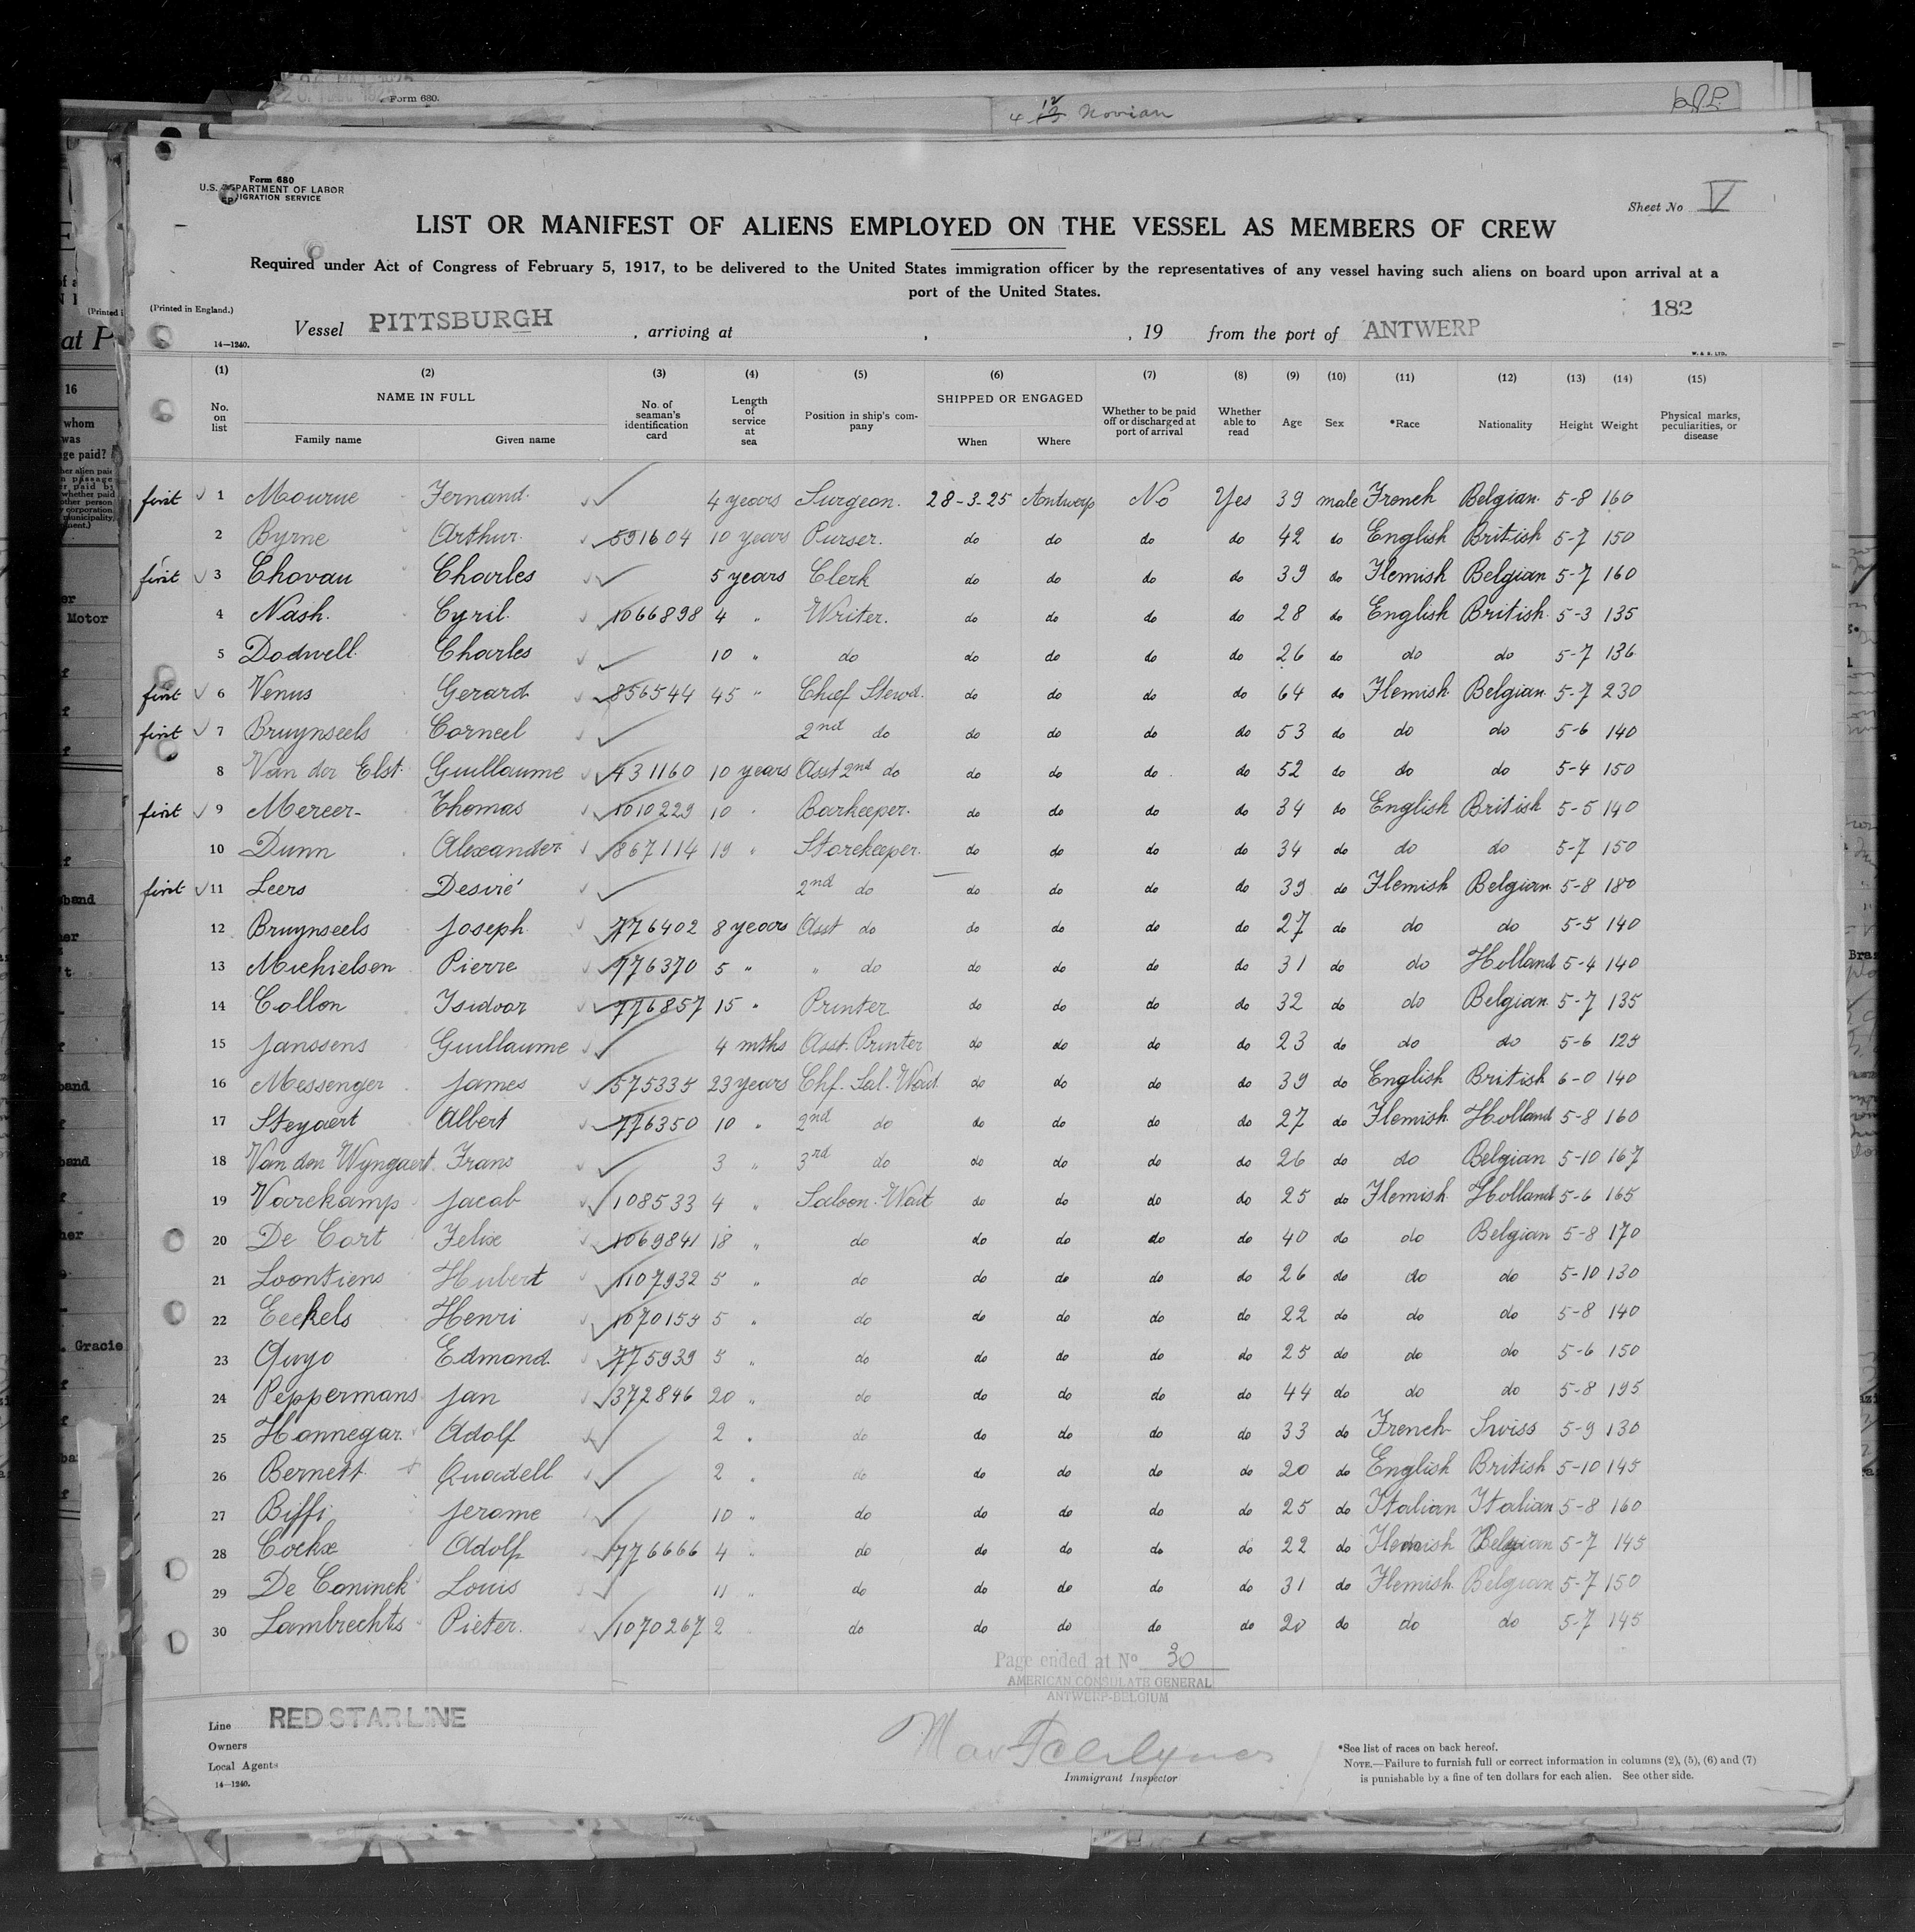 Form 680.
4 12 Novian
Form 680
U.S. DEPARTMENT OF LABOR
IMMIGRATION SERVICE
Sheet No V
LIST OR MANIFEST OF ALIENS EMPLOYED ON THE VESSEL AS MEMBERS OF CREW
Required under Act of Congress of February 5, 1917, to be delivered to the United States immigration officer by the representatives of any vessel having such aliens on board upon arrival at a
port of the United States.
(Printed in England.)
182
Vessel PITTSBURGH , arriving at , , 19 from the port of ANTWERP
14—1240.
W. & S. LTD.
(1) (2) (3) (4) (5) (6) (7) (8) (9) (10) (11) (12) (13) (14) (15)
No. on list NAME IN FULL Family name Given name No. of seaman's identification card Length of service at sea Position in ship's company SHIPPED OR ENGAGED When Where Whether to be paid off or discharged at port of arrival Whether able to read Age Sex *Race Nationality Height Weight Physical marks, peculiarities, or disease
first 1 Mourue Fernand. 4 years Surgeon. 28-3-25 Antwerp No Yes 39 male French Belgian. 5-8 160
2 Byrne Arthur. 591604 10 years Purser. do do do do 42 do English British 5-7 150
first 3 Chovau Charles 5 years Clerk do do do do 39 do Flemish Belgian 5-7 160
4 Nash. Cyril. 1066898 4 " Writer. do do do do 28 do English British. 5-3 135
5 Dodwell. Charles 10 " do do do do do 26 do do do 5-7 136
first 6 Venus Gerard 856544 45 " Chief Stewd. do do do do 64 do Flemish Belgian 5-7 230
first 7 Bruynseels Corneel 2nd do do do do do 53 do do do 5-6 140
8 Van der Elst. Guillaume 431160 10 years Asst 2nd do do do do do 52 do do do 5-4 150
first 9 Mercer- Thomas 1010229 10 " Barkeeper. do do do do 34 do English British 5-5 140
10 Dunn Alexander 867114 19 " Storekeeper. do do do do 34 do do do 5-7 150
first 11 Leers Desiré 2nd do do do do do 39 do Flemish Belgian 5-8 180
12 Bruynseels Joseph 776402 8 years Asst do do do do do 27 do do do 5-5 140
13 Michielsen Pierre 776370 5 " " do do do do do 31 do do Holland 5-4 140
14 Collon Isidoor 776857 15 " Printer do do do do 32 do do Belgian. 5-7 135
15 Janssens Guillaume 4 mths Asst. Printer do do do do 23 do do do 5-6 125
16 Messenger James 575335 23 years Chf. Sal. Wait. do do do do 39 do English British 6-0 140
17 Steyaert Albert 776350 10 " 2nd do do do do do 27 do Flemish Holland 5-8 160
18 Van den Wyngaert Frans 3 " 3rd do do do do do 26 do do Belgian 5-10 167
19 Varekamp Jacob 108533 4 " Saloon. Wait do do do do 25 do Flemish Holland 5-6 165
20 De Cort Felix 1069841 18 " do do do do do 40 do do Belgian 5-8 170
21 Loontiens Hubert 1107932 5 " do do do do do 26 do do do 5-10 130
22 Eeckels Henri 1070154 5 " do do do do do 22 do do do 5-8 140
23 Quyo Edmond 775939 5 " do do do do do 25 do do do 5-6 150
24 Peppermans Jan 372846 20 " do do do do do 44 do do do 5-8 195
25 Honnegar. Adolf 2 " do do do do do 33 do French Swiss 5-9 130
26 Bernett Quodell 2 " do do do do do 20 do English British 5-10 145
27 Biffi Jerome 10 " do do do do do 25 do Italian Italian 5-8 160
28 Cockx Adolf 776666 4 " do do do do do 22 do Flemish Belgian 5-7 145
29 De Coninck Louis 11 " do do do do do 31 do Flemish. Belgian 5-7 150
30 Lambrechts Pieter. 1070267 2 do do do do do 20 do do do 5-7 145
Page ended at No 30
AMERICAN CONSULATE GENERAL
ANTWERP-BELGIUM
Line RED STAR LINE
Owners
Local Agents
14—1240.
Immigrant Inspector
*See list of races on back hereof.
NOTE.—Failure to furnish full or correct information in columns (2), (5), (6) and (7)
is punishable by a fine of ten dollars for each alien. See other side.